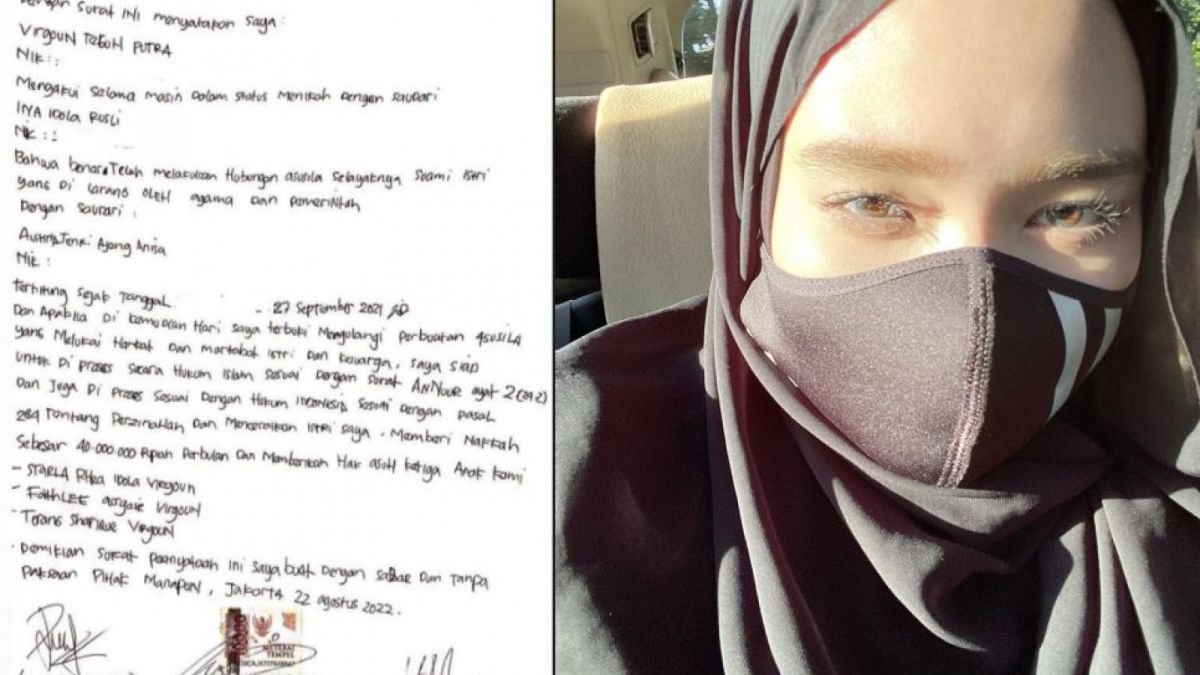 Dengan Surat INI menyatakan Saya :
VIRGOUN TEGUH PUTRA
NIK : :
Mengakui Selama masih Dalam Status Menikah Dengan Saudari
INA IDOLA RUSLI
NIK : :
Bahwa benar Telah melakukan Hubungan asusila Selayaknya Suami Istri
Yang Di larang oleh agama Dan Pemerintah
Dengan Saudari :
Tenri Ajeng Anisa
NIK :
Terhitung Sejak Tanggal - 27 September 2021
Dan Apabila Di Kemudian Hari Saya terbukti Mengulangi Perbuatan ASUSILA
yang Melukai Harkat Dan martabat Istri Dan Keluarga, Saya Siap
Untuk Di Proses Secara Hukum Islam Sesuai Dengan Surat ANNUUR ayat 2
Dan Juga Di Proses Sesuai Dengan Hukum INDONESIA Sesuai Dengan Pasal
284 Tentang Perzinahan Dan Menceraikan Istri Saya. Memberi Nafkah
Sebesar 40.000.000 Rupiah Perbulan Dan Memberikan Hak asuh Ketiga Anak Kami
- STARLA Rhea Idola Virgoun
- Faithlee Virgoun
- Virgoun
. Demikian Surat Pernyataan Ini Saya buat Dengan Sadar Dan Tanpa
Paksaan Pihak Manapun, Jakarta 22 agustus 2022.
METERAI
TEMPEL